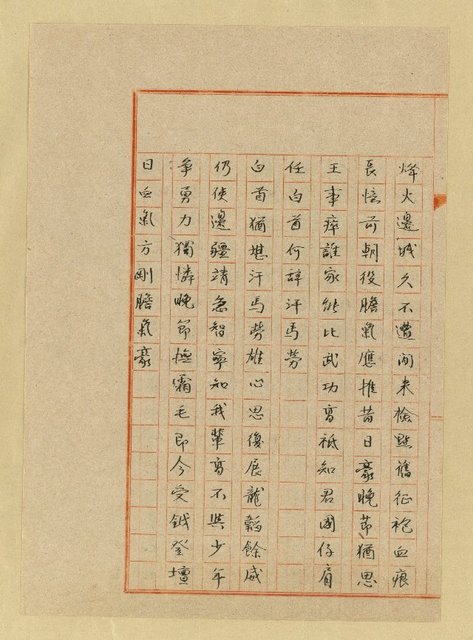 烽火邊城久不遭閒來檢點舊征袍血痕
長憶前朝役膽氣應推昔日豪晚節猶思
王事瘁誰家能比武功高祗知君國仔肩
任白首何辭汗馬勞
白首猶堪汗馬勞雄心思復展龍韜餘威
仍使邊疆靖急智寧知我輩高不與少年
爭勇力獨憐晚節撫霜毛即今受鉞登壇
日血氣方剛膽氣豪